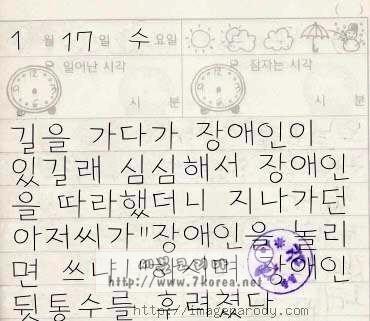 1 월 17 일 수 요일
일어난 시각
잠자는 시각
시 분
시 분
길을 가다가 장애인이
있길래 심심해서 장애인
을 따라했더니 지나가던
아저씨가"장애인을 놀리
면 쓰나! 장애인
뒷통수를 후려쳤다
http://www.7korea.net
http://imageparody.com